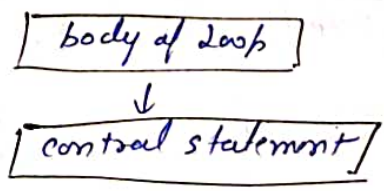 body of Loop
↓
control statement